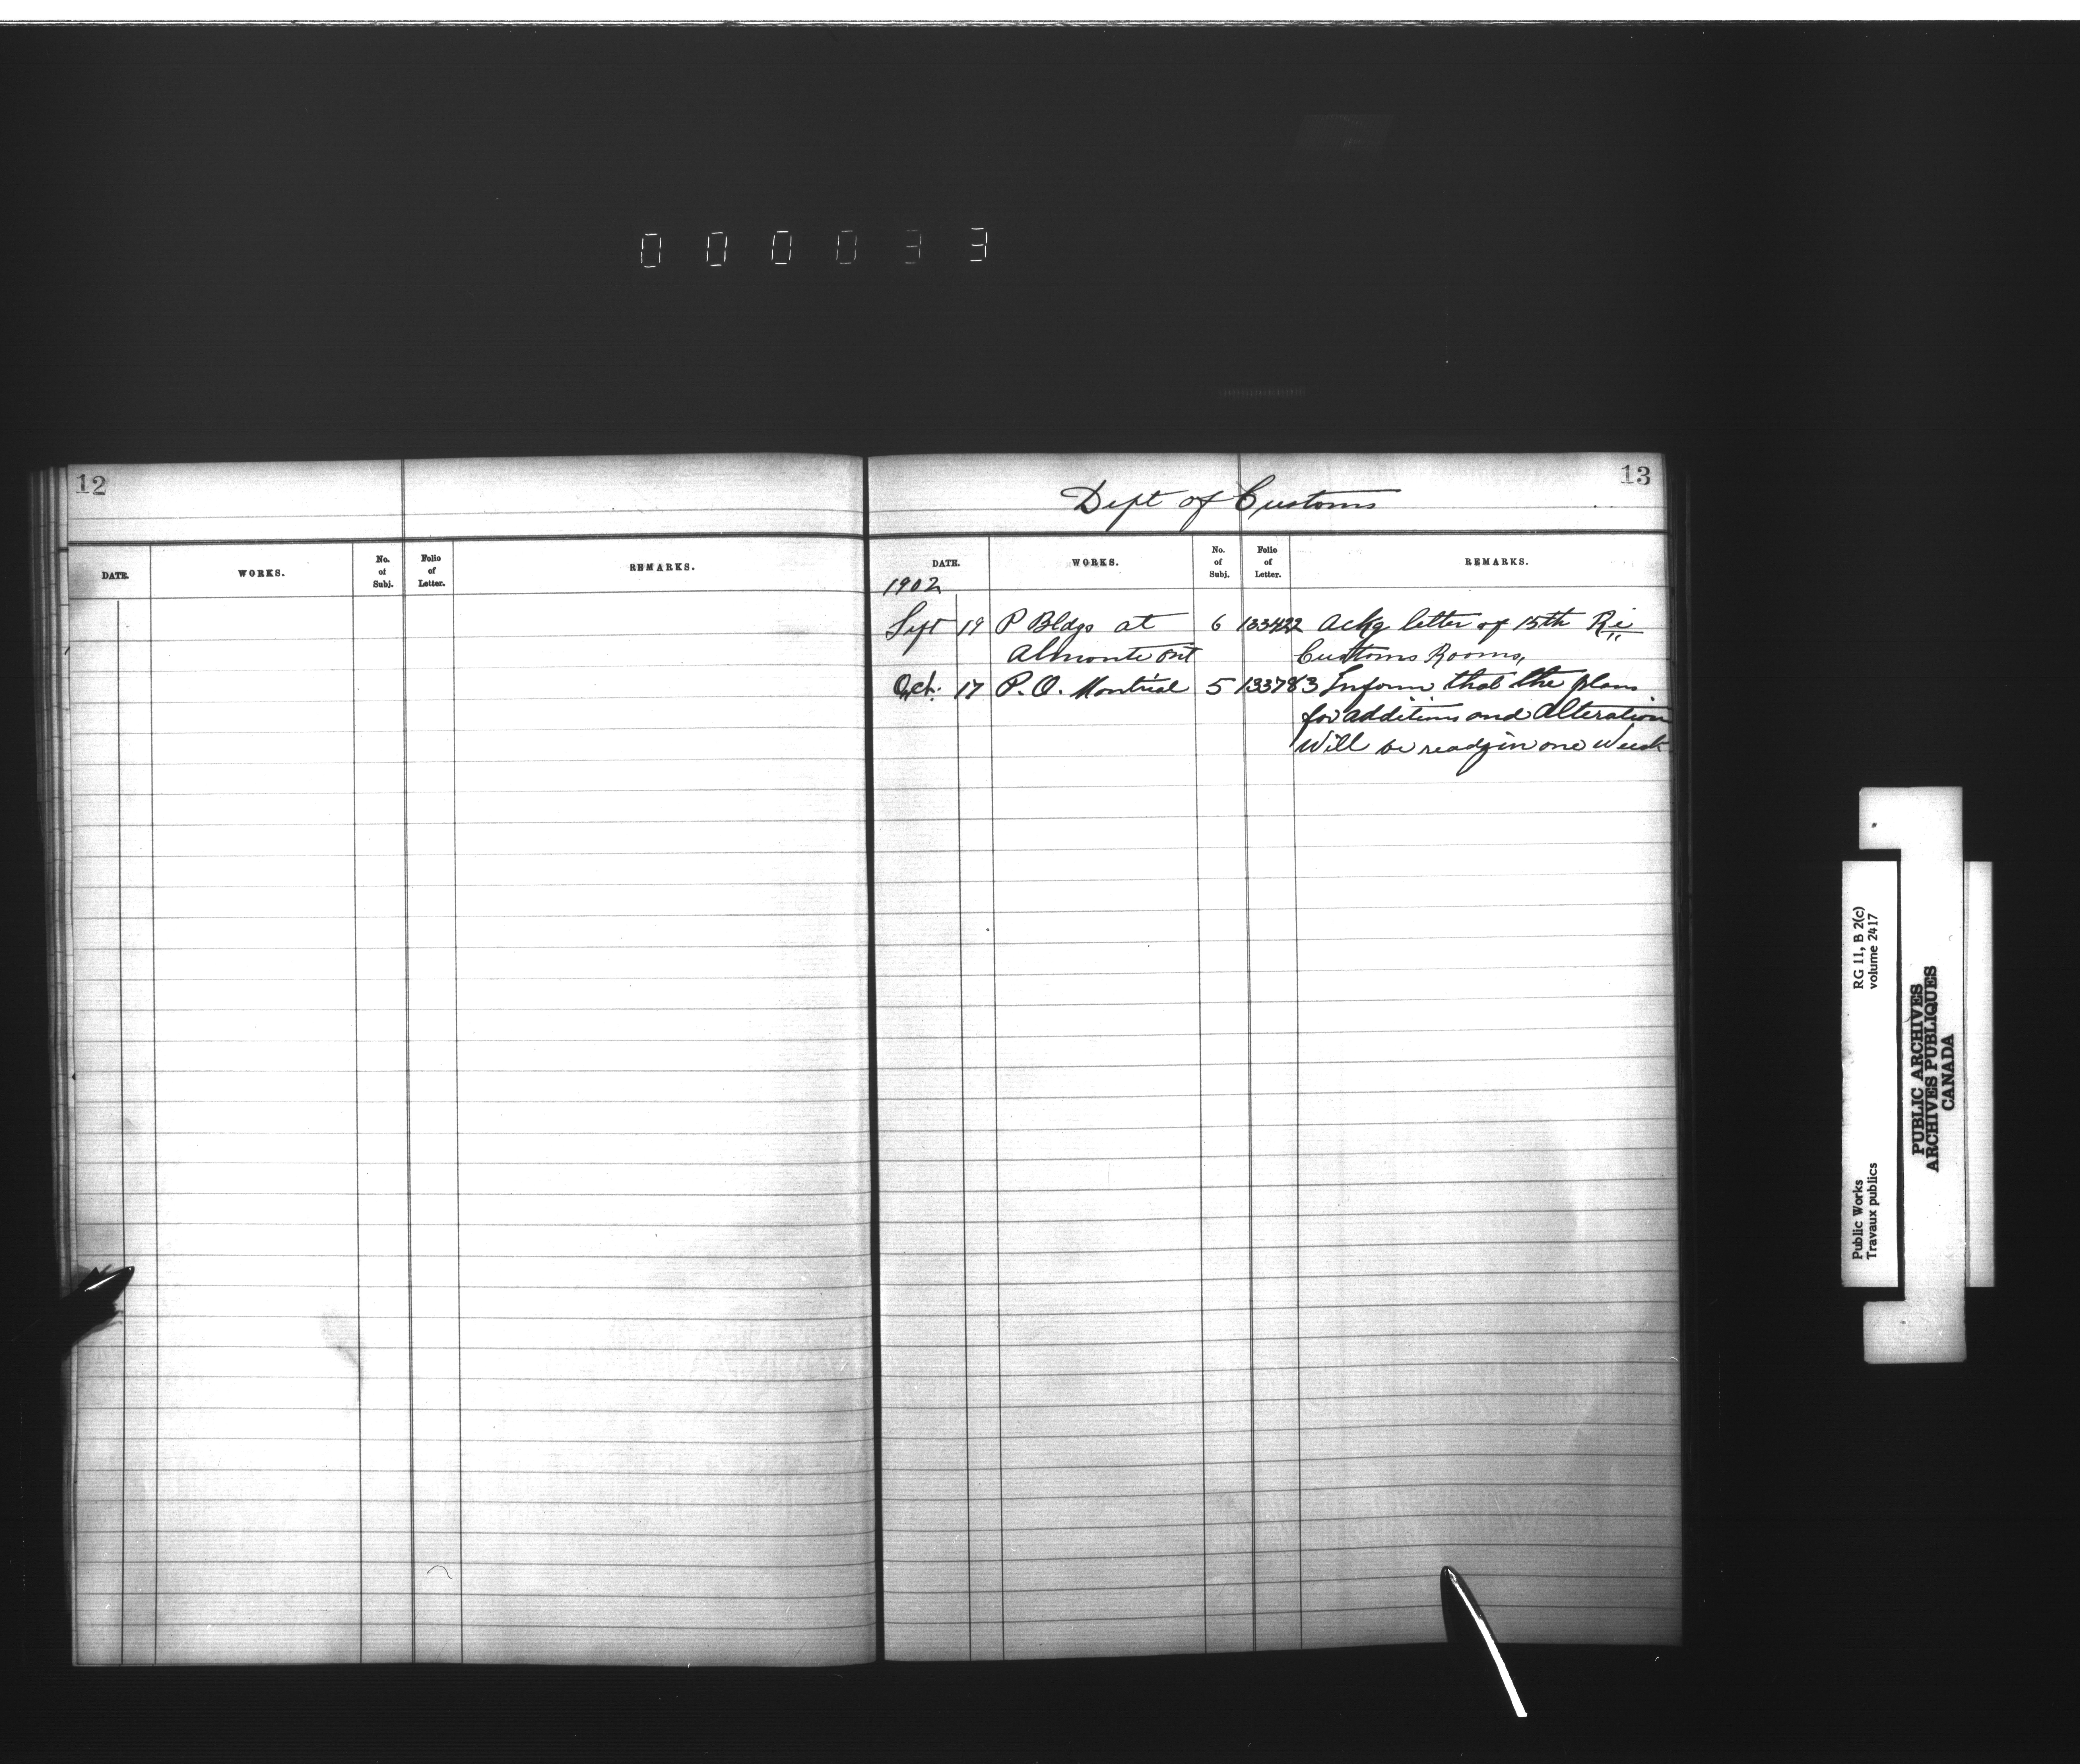 000033
12
DATE. WORKS. No. of Subj. Folio of Letter. REMARKS.
13
Dept of Customs
DATE. WORKS. No. of Subj. Folio of Letter. REMARKS.
1902
Sept 19 P Bldgs at 6 133422 Ackg letter of 15th Re
Almonte Ont Customs Rooms,
Oct. 17 P.O. Montreal 5 133783 Inform that the plans
for additions and Alteration
Will be ready in one Week
Public Works RG 11, B 2(c)
Travaux publics volume 2417
PUBLIC ARCHIVES
ARCHIVES PUBLIQUES
CANADA